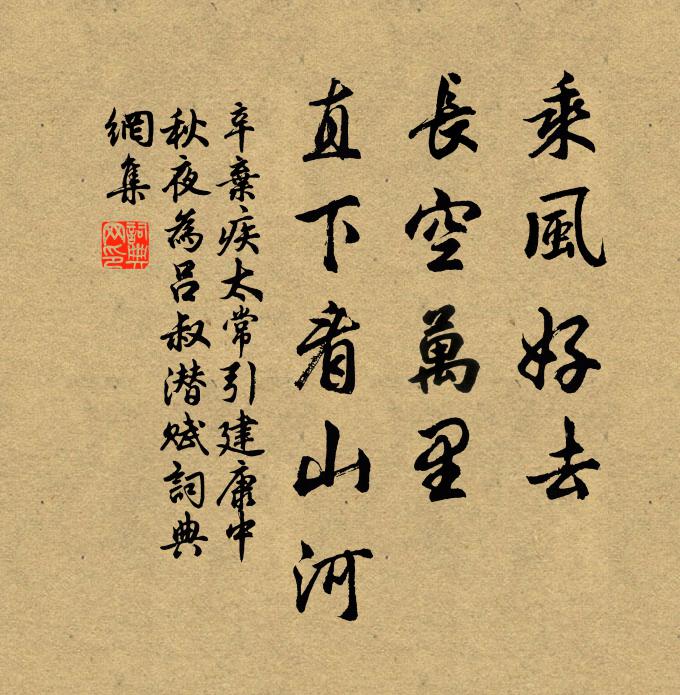 乘風好去
長空萬里
直下看山河
辛棄疾太常引建康中
秋夜為呂叔潜賦詞典
網集
詞典网印